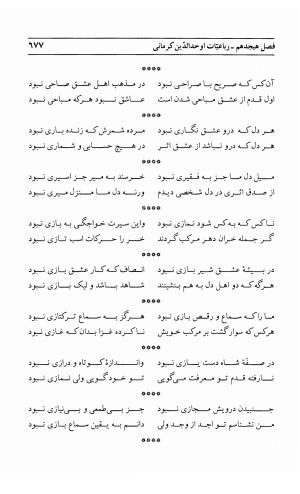 فصل هیجدهم ـ رباعیّات اوحدالدّین کرمانی ۶۷۷
****
آن کس که صریح با صراحی نبود در مذهب اهل عشق صاحی نبود
اول قدم از عشق مباحی شدن است عاشق نبود هرکه مباحی نبود
****
هر دل که درو عشق نگاری نبود مرده شمرش که زنده باری نبود
هر دل که درو نباشد از عشق اثر در هیچ حسابی و شماری نبود
****
میل دل ما جز به فقیری نبود خرسند به میر جز اسیری نبود
از صدق اثری در دل شخصی دیدم ورنه دل ما منزل میری نبود
****
ناکس که به کس شود نمازی نبود واین سیرت خواجگی به بازی نبود
گر جمله خران دهر مرکب گردند خر را حرکات اسب تازی نبود
****
در بیشهٔ عشق شیر بازی نبود انصاف که کار عشق بازی نبود
هرگه که دو اهل دل به هم بنشینند شاهد باشد و لیک بازی نبود
****
ما را که سماع و رقص بازی نبود هرگز به سماع ترکتازی نبود
هرکس که سوار گشت بر مرکب خویش ناکرده غزا بدان که غازی نبود
****
در صفّهٔ شاه دست یازی نبود واندازهٔ کوتاه و درازی نبود
نارفته قدم تو معرفت می‌گویی تو خود گویی ولی نمازی نبود
****
جنبیدن درویش مجازی نبود جز بی‌طمعی و بی‌نیازی نبود
من نشناسم تو اجد از وجد ولی دانم به یقین سماع بازی نبود
****